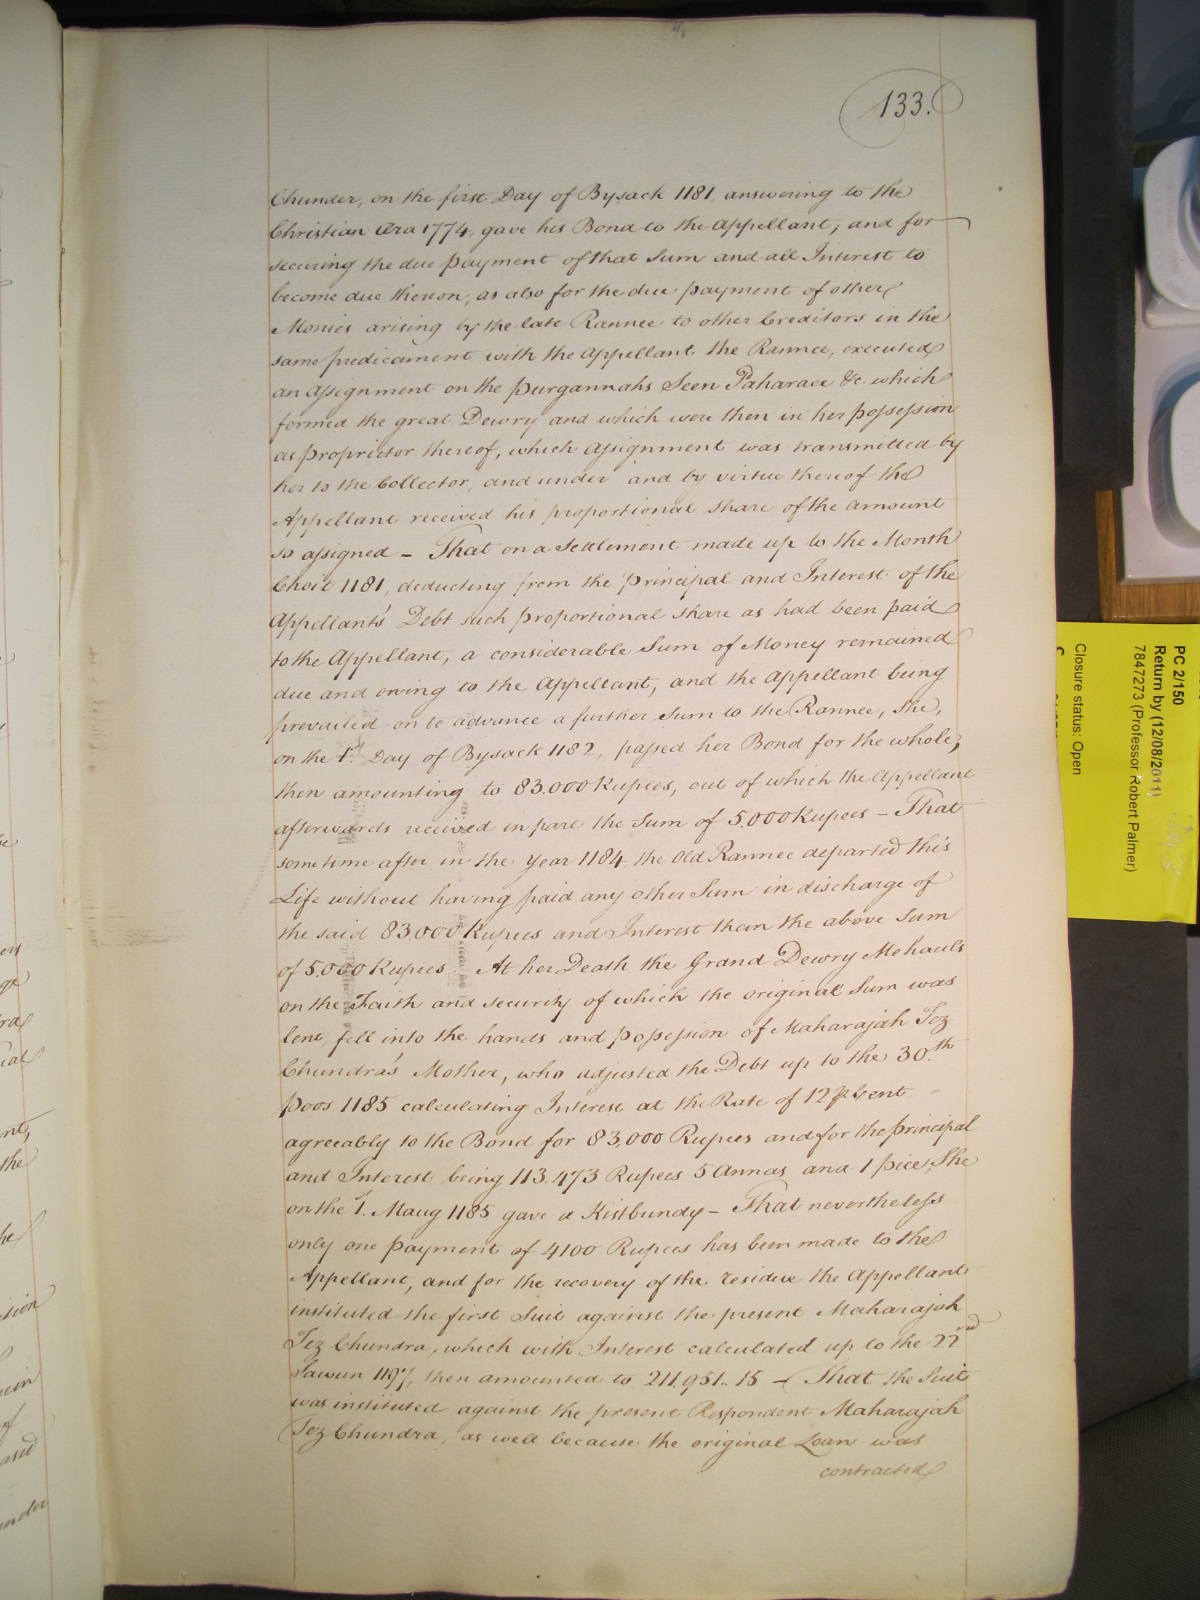 133.
Chunder, on the first Day of Bysack 1181, answering to the
Christian Æra 1774, gave his Bond to the Appellant; and for
securing the due payment of that Sum and all Interest to
become due thereon, as also for the due payment of other
Monies arising by the late Rannee to other Creditors in the
same predicament with the Appellant the Rannee, executed
an Assignment on the purgannahs Seen Paharaee &c. which
formed the great Dewry and which were then in her possession
as proprietor thereof, which Assignment was transmitted by
her to the Collector, and under and by virtue thereof the
Appellant received his proportional share of the amount
so assigned – That on a Settlement made up to the Month
Choit 1181, deducting from the principal and Interest of the
Appellant's Debt such proportional share as had been paid
to the Appellant, a considerable Sum of Money remained
due and owing to the Appellant, and the Appellant being
prevailed on to advance a further Sum to the Rannee, She,
on the 1st Day of Bysack 1182, passed her Bond for the whole,
then amounting to 83.000 Rupees, out of which the Appellant
afterwards received in part the Sum of 5.000 Rupees – That
sometime after in the year 1184, the Old Rannee departed this
Life without having paid any other Sum in discharge of
the said 83.000 Rupees and Interest than the above Sum
of 5.000 Rupees At her Death the Grand Dewry Mehauls
on the Faith and security of which the original Sum was
lent, fell into the hands and possession of Maharajah Tez
Chundra's Mother, who adjusted the Debt up to the 30.th
poos 1185 calculating Interest at the Rate of 12 p Cent
agreeably to the Bond for 83,000 Rupees and for the principal
and Interest being 113.473 Rupees 5 Annas and 1 pice, She
on the 1. Maug 1185 gave a Kistbundy – That nevertheless
only one payment of 4100 Rupees has been made to the
Appellant, and for the recovery of the residue the Appellant
instituted the first Suit against the present Maharajah
Tez Chundra, which with Interest calculated up to the 22nd
Sawun 1197, then amounted to 211,951.. 15 – That the Suit
was instituted against the present Respondent Maharajah
Tez Chundra, as well because the original Loan was
contracted
PC 2/150
Return by (12/08/2011)
7847273 (Professor Robert Palmer)
Closure status: Open